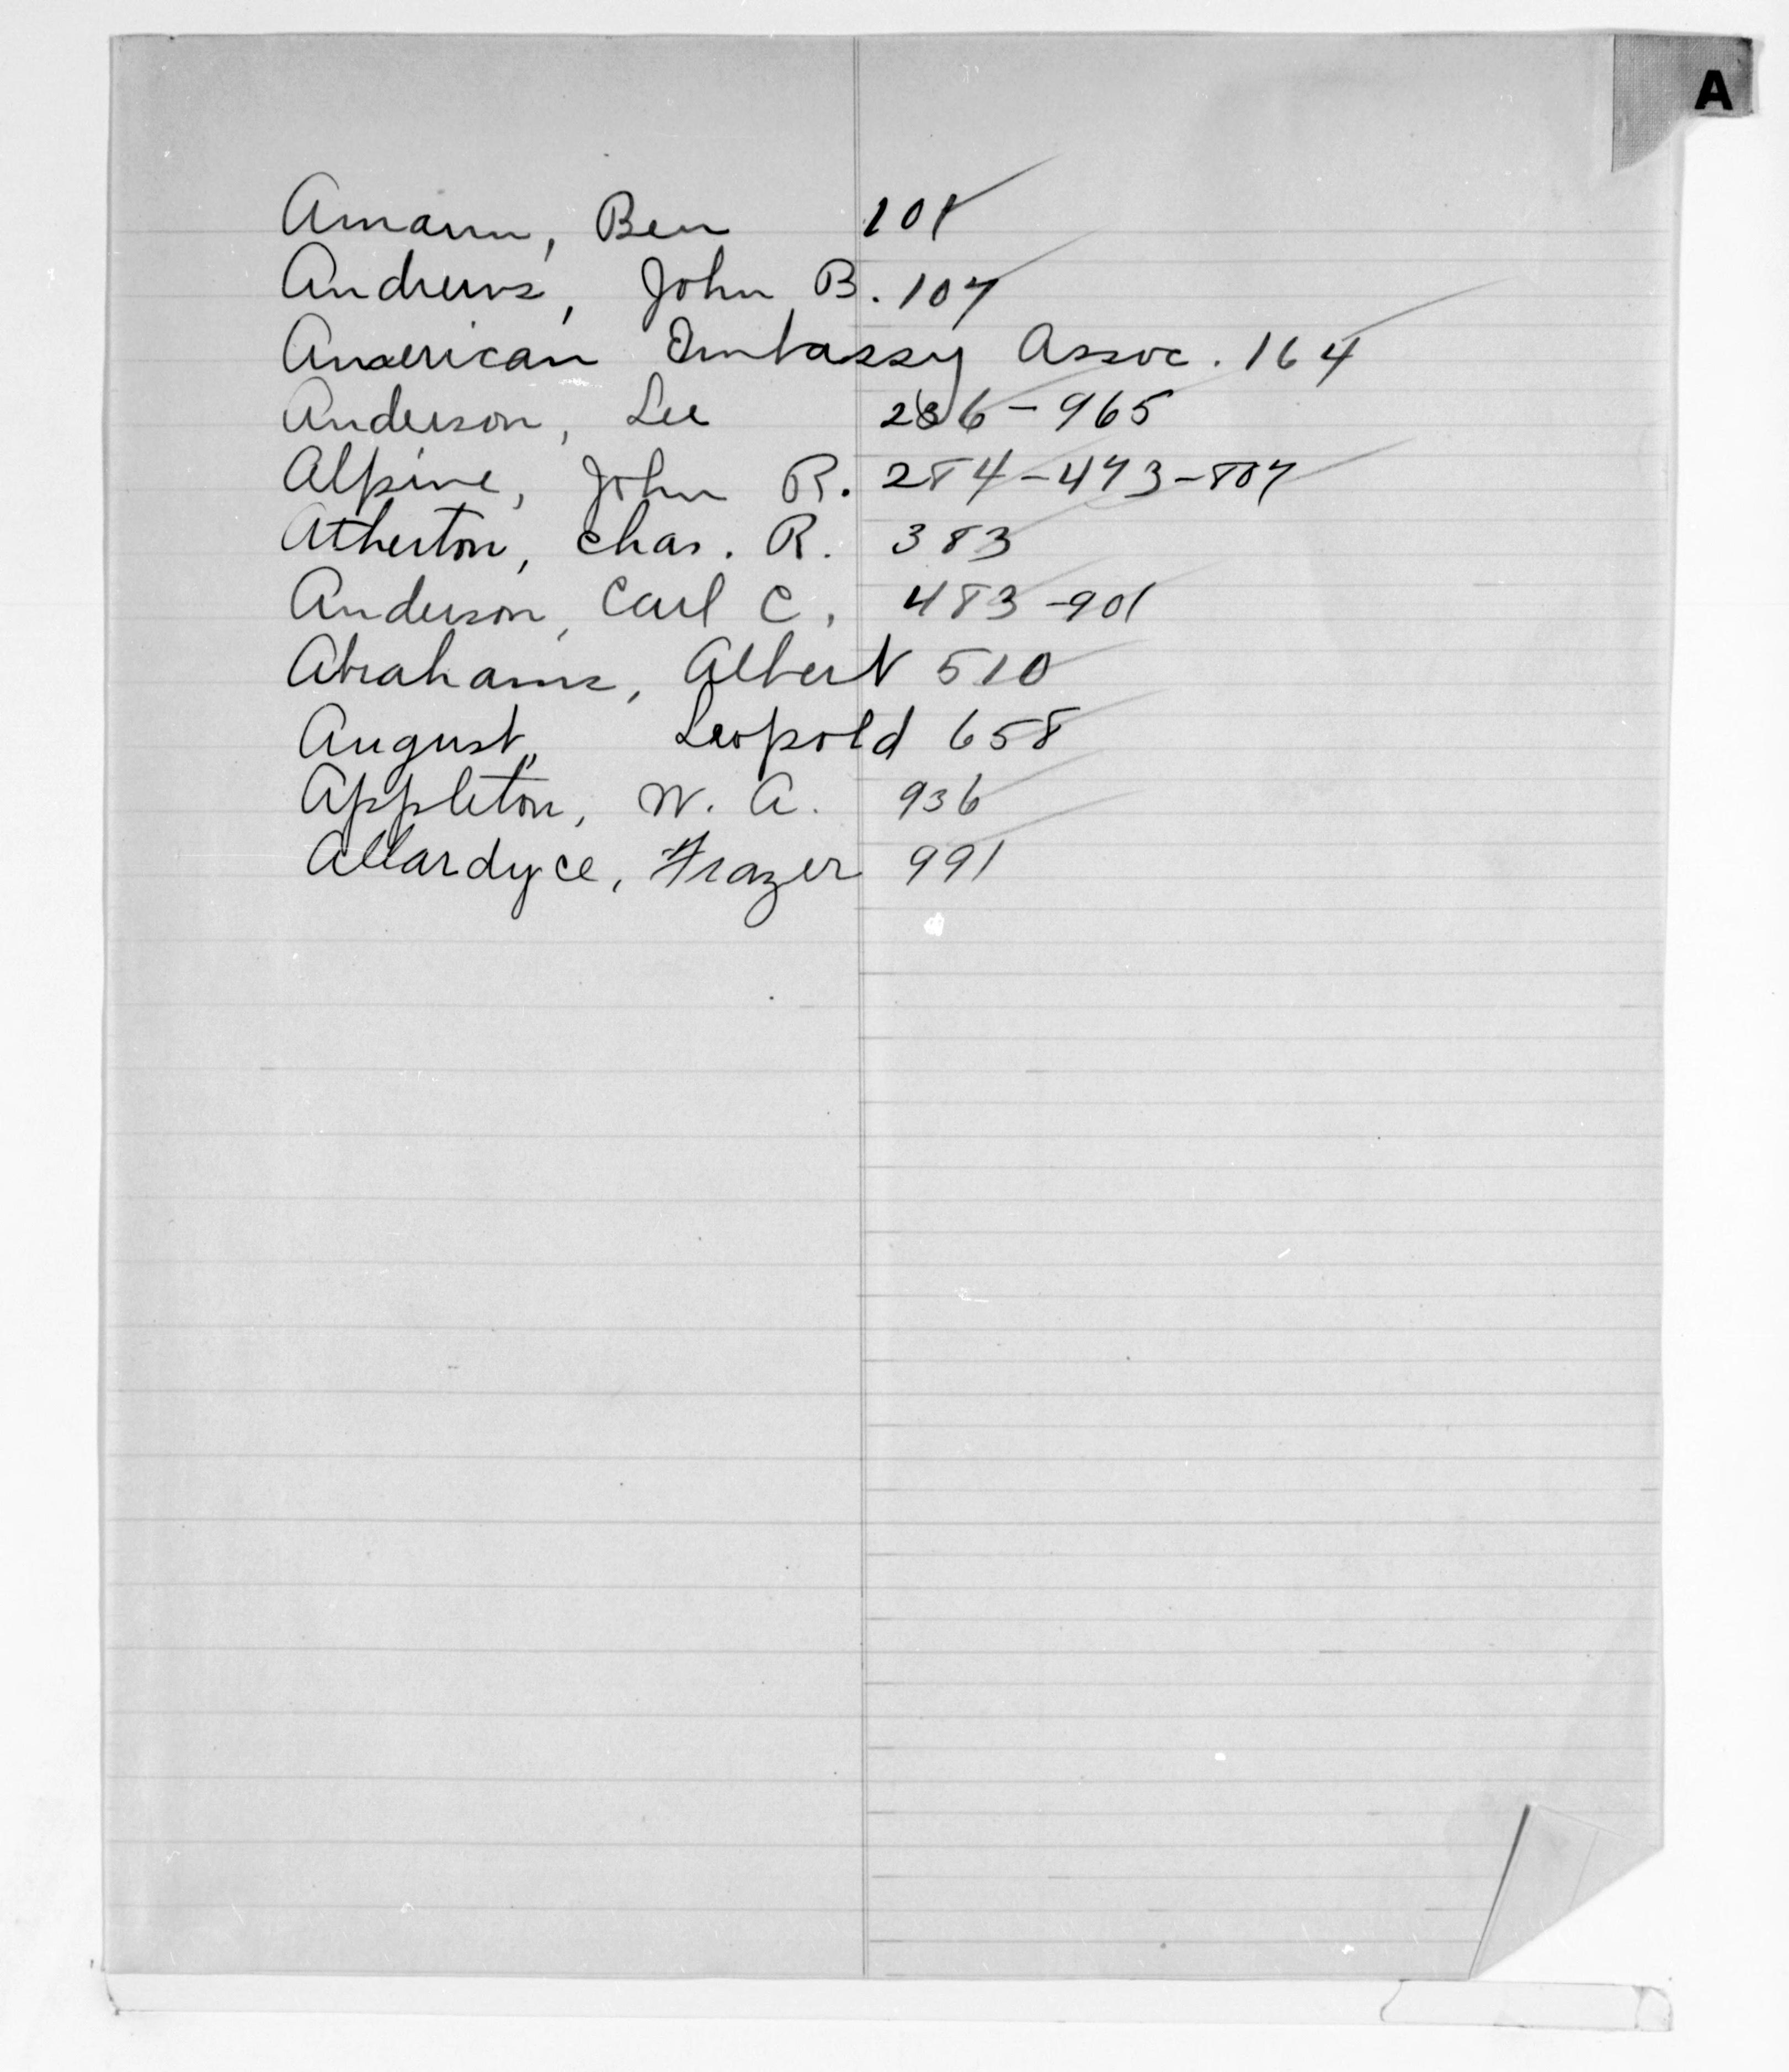 A
Amann, Ben 101
Andrews, John B. 107
American Embassy Assoc. 164
Anderson, Lee 236-965
Alpine, John R. 284-473-807
Atherton, Chas. R. 383
Anderson, Carl C. 483-901
Abrahams, Albert 510
August, Leopold 658
Appleton, W. A. 936
Allardyce, Frazer 991